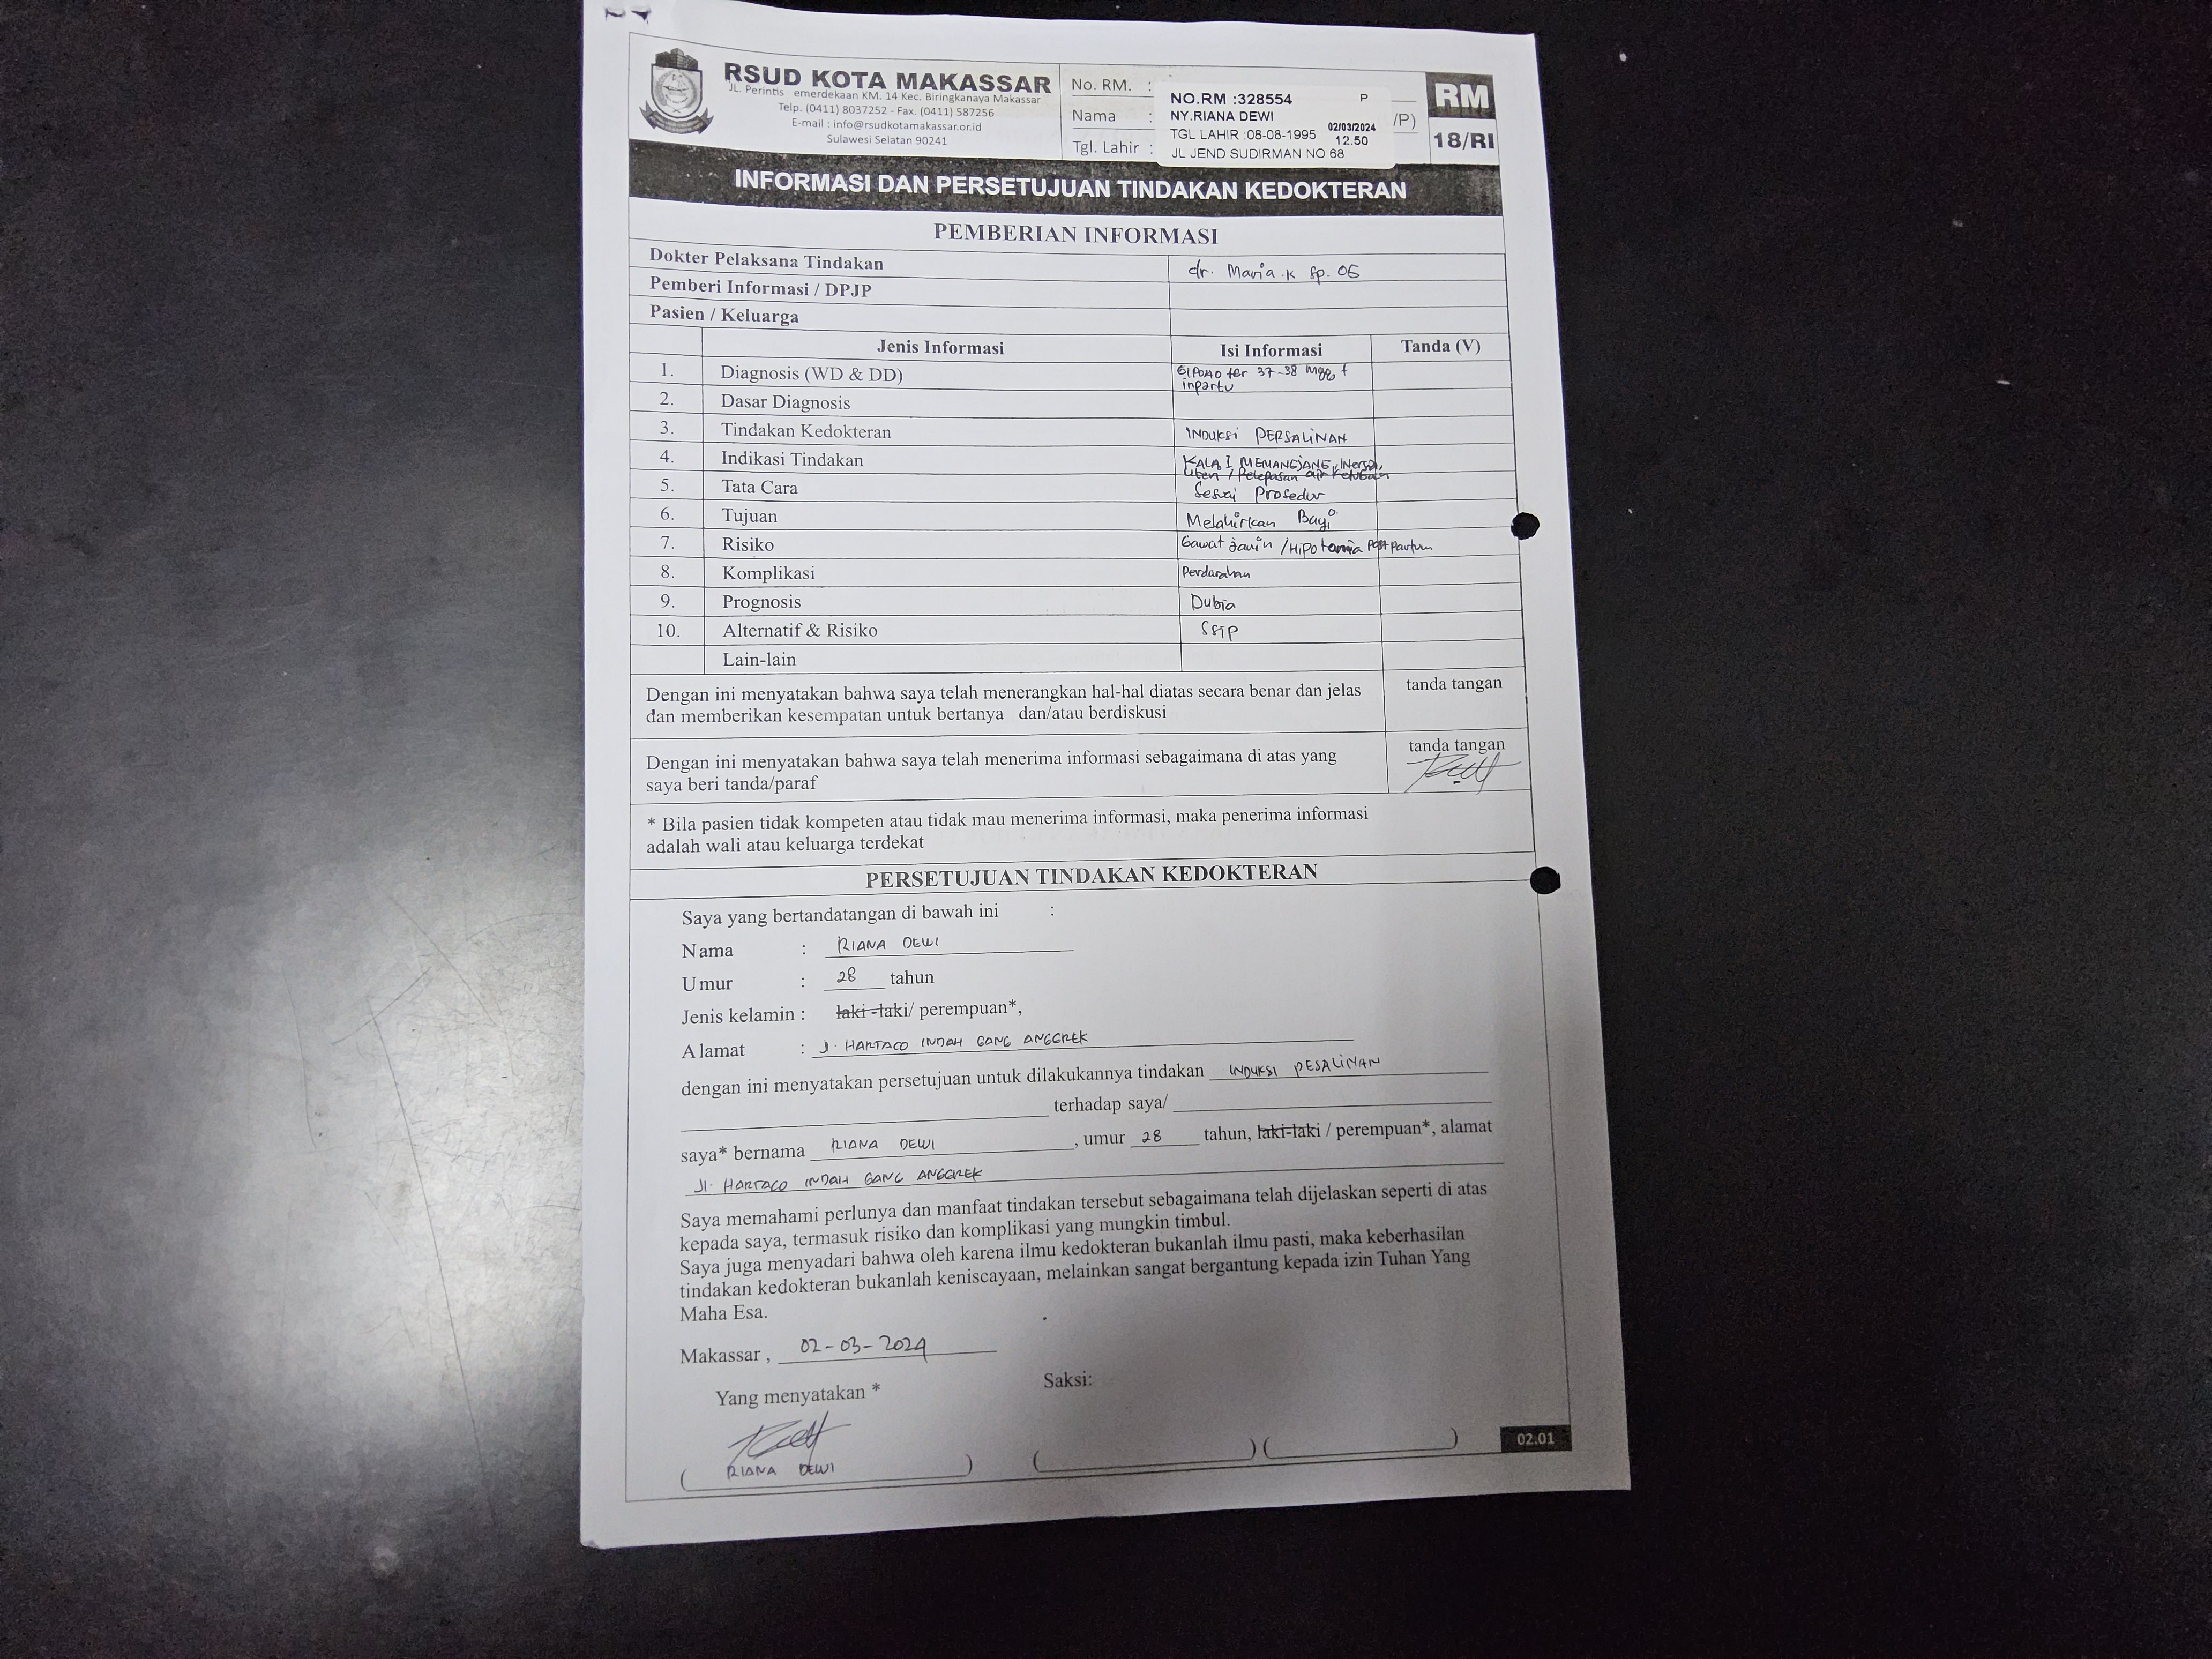 RSUD KOTA MAKASSAR
JL. Perintis emerdekaan KM. 14 Kec. Biringkanaya Makassar
Telp. (0411) 8037252 - Fax. (0411) 587256
E-mail : info@rsudkotamakassar.or.id
Sulawesi Selatan 90241
No. RM. :
Nama :
Tgl. Lahir :
/P)
NO.RM :328554 P
NY.RIANA DEWI
TGL LAHIR :08-08-1995 02/03/2024
12.50
JL JEND SUDIRMAN NO 68
RM
18/RI
INFORMASI DAN PERSETUJUAN TINDAKAN KEDOKTERAN
PEMBERIAN INFORMASI
Dokter Pelaksana Tindakan dr. Maria.K Sp.OG
Pemberi Informasi / DPJP
Pasien / Keluarga
Jenis Informasi Isi Informasi Tanda (V)
1. Diagnosis (WD & DD) G1P0A0 ter 37-38 mgg +
inpartu
2. Dasar Diagnosis
3. Tindakan Kedokteran INDUKSI PERSALINAN
4. Indikasi Tindakan KALA I MEMANJANG, Inersia
Uteri / Pelepasan air Ketuban
5. Tata Cara Sesuai Prosedur
6. Tujuan Melahirkan Bayi
7. Risiko Gawat Janin / Hipotonia Post Partum
8. Komplikasi Perdarahan
9. Prognosis Dubia
10. Alternatif & Risiko
Lain-lain
Dengan ini menyatakan bahwa saya telah menerangkan hal-hal diatas secara benar dan jelas
dan memberikan kesempatan untuk bertanya dan/atau berdiskusi
tanda tangan
Dengan ini menyatakan bahwa saya telah menerima informasi sebagaimana di atas yang
saya beri tanda/paraf
tanda tangan
* Bila pasien tidak kompeten atau tidak mau menerima informasi, maka penerima informasi
adalah wali atau keluarga terdekat
PERSETUJUAN TINDAKAN KEDOKTERAN
Saya yang bertandatangan di bawah ini :
Nama : RIANA DEWI
Umur : 28 tahun
Jenis kelamin : laki -laki/ perempuan*,
Alamat : J. HARTACO INDAH GANG ANGGREK
dengan ini menyatakan persetujuan untuk dilakukannya tindakan INDUKSI PESALINAN
terhadap saya/
saya* bernama RIANA DEWI , umur 28 tahun, laki-laki / perempuan*, alamat
Jl. HARTACO INDAH GANG ANGGREK
Saya memahami perlunya dan manfaat tindakan tersebut sebagaimana telah dijelaskan seperti di atas
kepada saya, termasuk risiko dan komplikasi yang mungkin timbul.
Saya juga menyadari bahwa oleh karena ilmu kedokteran bukanlah ilmu pasti, maka keberhasilan
tindakan kedokteran bukanlah keniscayaan, melainkan sangat bergantung kepada izin Tuhan Yang
Maha Esa.
Makassar , 02-03-2024
Yang menyatakan * Saksi:
( RIANA DEWI ) ( ) ( )
02.01